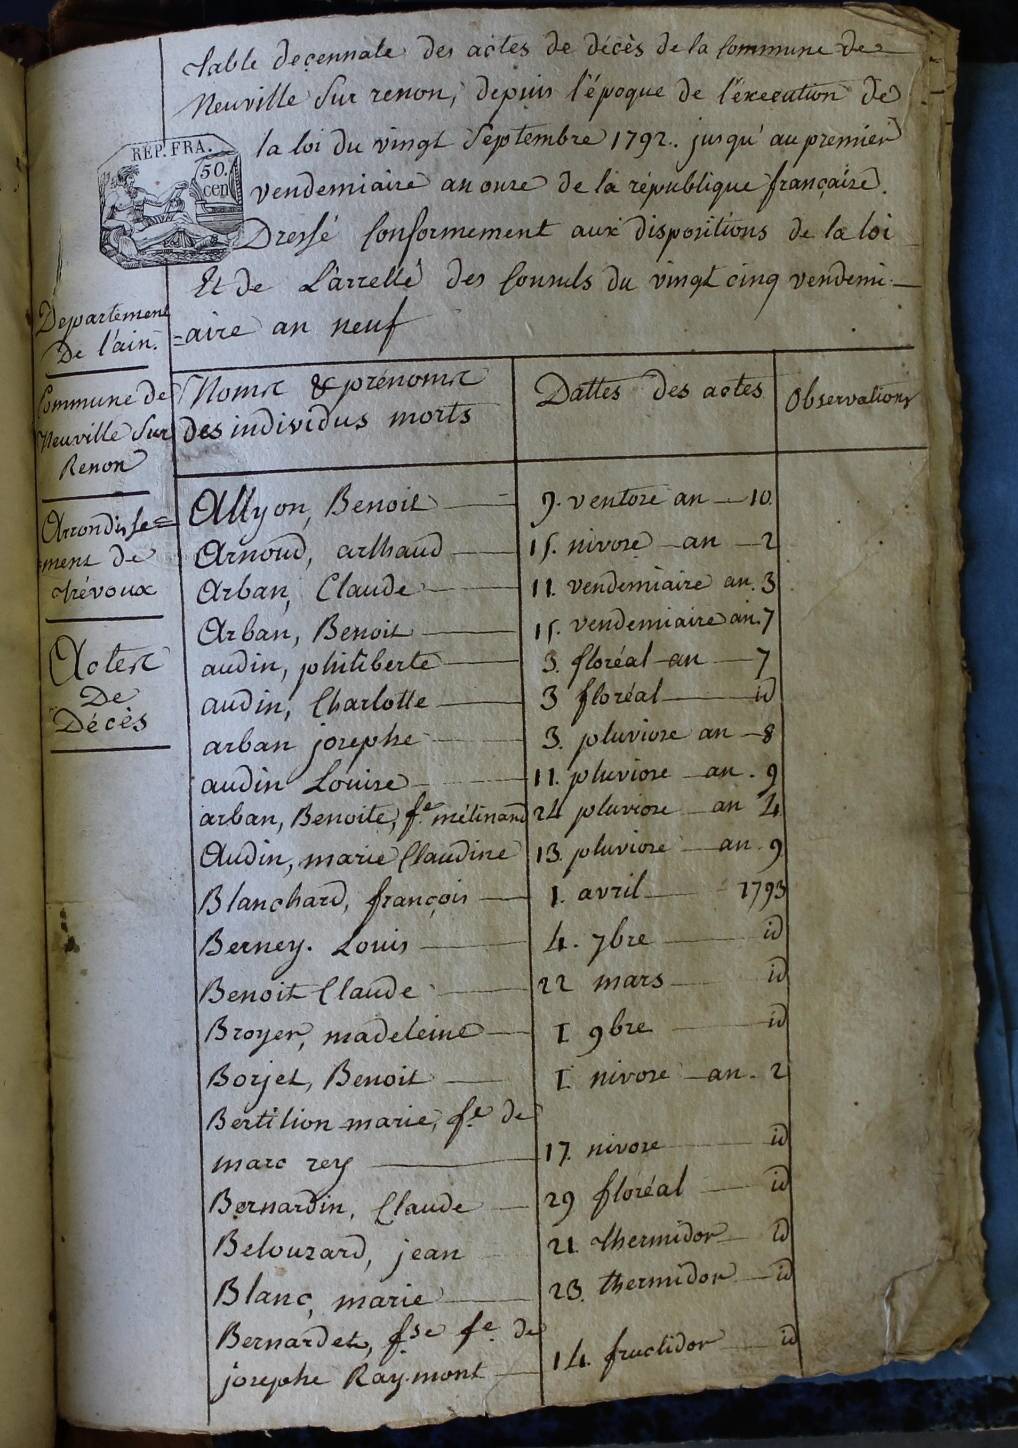 Table deçennale des actes de décès de la Commune de
Neuville Sur renon, depuis l'époque de l'éxecution de
la loi du vingt Septembre 1792. jusqu'au premier
vendemiaire an onze de la république françaire.
Dressé Conformement aux dispositions de la loi
Et de L'arreté des Consuls du vingt cinq vendemi-
=aire an neuf
REP. FRA.
50.
cen
Departement
De l'ain.
Commune de
Neuville Sur
Renon
Arrondisse=
=ment de
trévoux
Actes
De
Décès
Noms & prénoms
des individus morts
Dattes des actes
Observations
Allyon, Benoit — 9. ventose an — 10.
Arnoud, arthaud — 15. nivose an — 2
Arban, Claude — 11. vendemiaire an. 3
Arban, Benoit — 15. vendemiaire an. 7
audin, philiberte — 3. floréal an — 7
audin, Charlotte — 3 floréal — id
arban josephe — 3. pluviose an — 8
audin Louise — 11. pluviose an. 9
arban, Benoite, fe. mélinand 24 pluviose an 4
Audin, marie Claudine 13. pluviose an. 9
Blanchard, françois — 1. avril — 1793
Berney. Louis — 4. 7bre — id
Benoit Claude — 22 mars — id
Broyer, madeleine — I 9bre — id
Borjet, Benoit — I nivose an. 2
Bertilion marie, fe. de
marc rey — 17. nivose — id
Bernardin, Claude — 29 floréal — id
Belouzard, jean 21. thermidor — id
Blanc, marie — 23. thermidor — id
Bernardet, fse fe. de
josephe Ray-mont — 14. fructidor — id